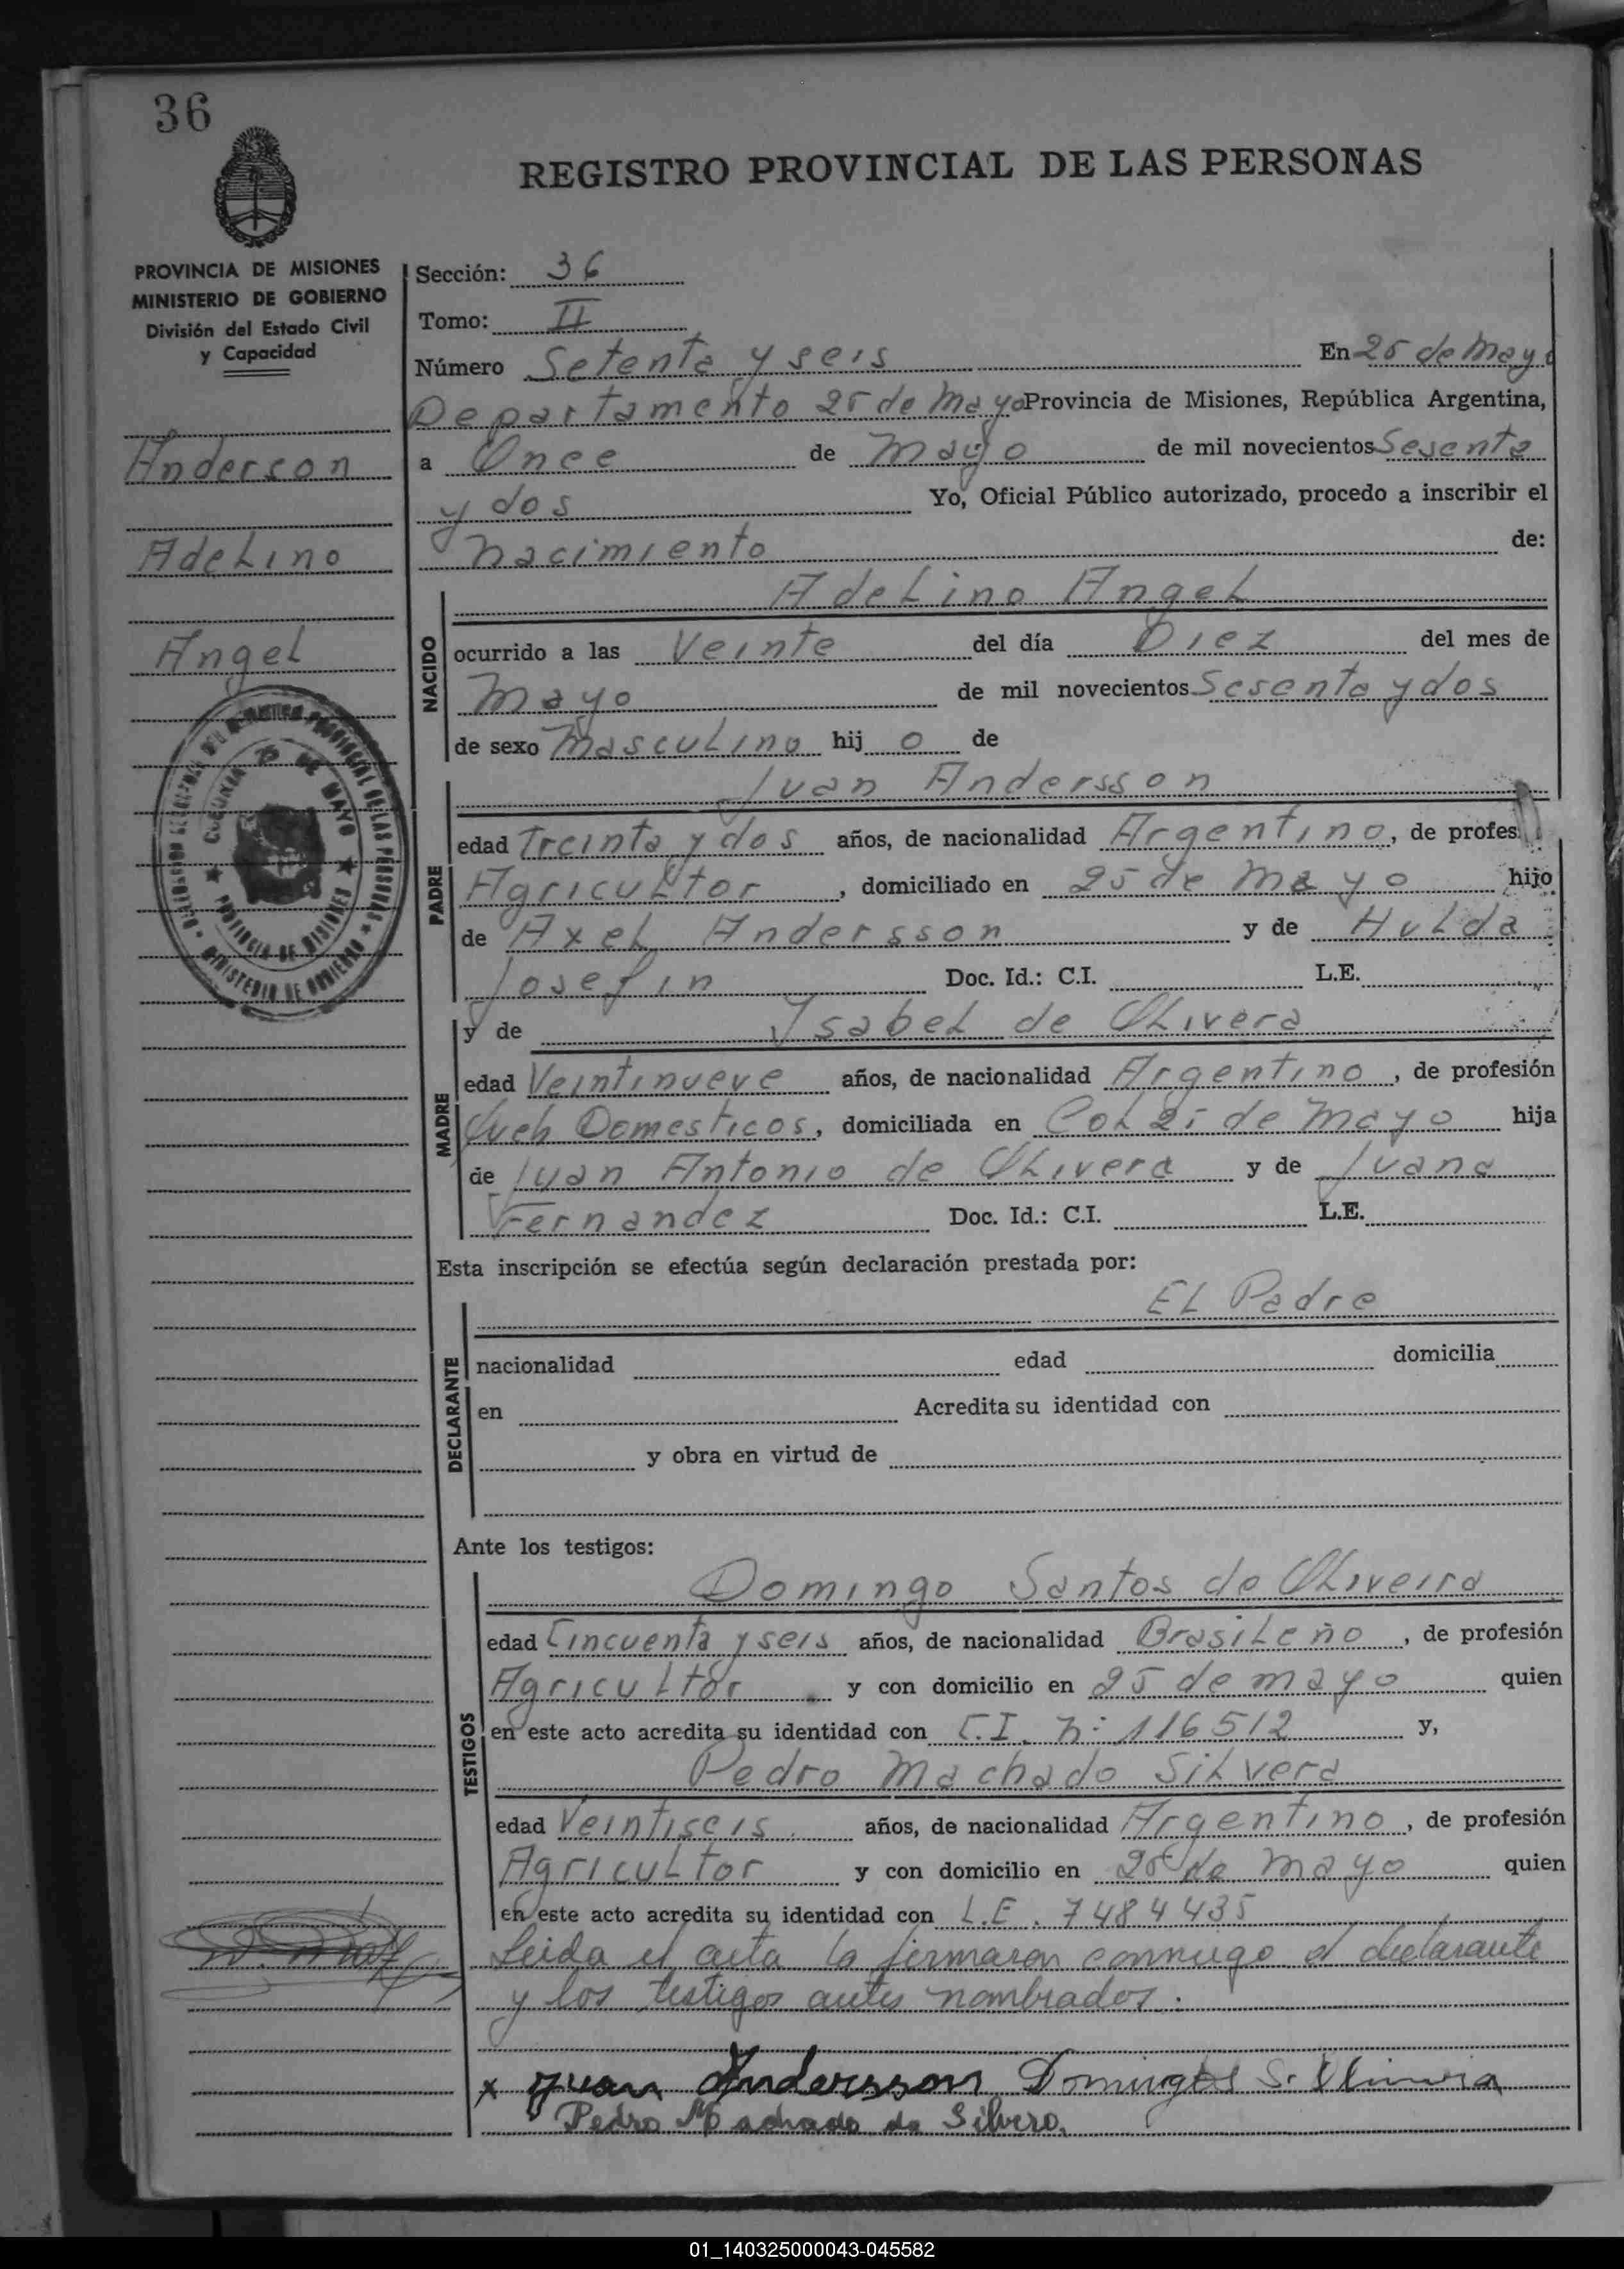 36
REGISTRO PROVINCIAL DE LAS PERSONAS
PROVINCIA DE MISIONES
MINISTERIO DE GOBIERNO
División del Estado Civil
y Capacidad
Anderson
Adelino
Angel
Sección: 36
Tomo: II
Número Setenta y seis En 25 de Mayo
Departamento 25 de Mayo Provincia de Misiones, República Argentina,
a Once de Mayo de mil novecientos Sesenta
y dos Yo, Oficial Público autorizado, procedo a inscribir el
nacimiento de:
NACIDO
Adelino Angel
ocurrido a las Veinte del día Diez del mes de
Mayo de mil novecientos Sesenta y dos
de sexo Masculino hij o de
PADRE
Juan Andersson
edad Treinta y dos años, de nacionalidad Argentino, de profes
Agricultor, domiciliado en 25 de Mayo hijo
de Axel Andersson y de Hulda
Josefin Doc. Id.: C.I. L.E.
MADRE
y de Ysabel de Olivera
edad Veintinueve años, de nacionalidad Argentino, de profesión
Queh Domesticos, domiciliada en Col 25 de Mayo hija
de Juan Antonio de Olivera y de Juana
Fernandez Doc. Id.: C.I. L.E.
Esta inscripción se efectúa según declaración prestada por:
DECLARANTE
El Padre
nacionalidad edad domicilia
en Acredita su identidad con
y obra en virtud de
Ante los testigos:
TESTIGOS
Domingo Santos de Oliveira
edad Cincuenta y seis años, de nacionalidad Brasileño, de profesión
Agricultor y con domicilio en 25 de mayo quien
en este acto acredita su identidad con C.I. n: 116512 y,
Pedro Machado Silvera
edad Veintiseis años, de nacionalidad Argentino, de profesión
Agricultor y con domicilio en 25 de mayo quien
en este acto acredita su identidad con L.E. 7484435
Leida el acta la firmaron conmigo el declarante
y los testigos antes nombrados.
x Juan Andersson Domingos S. Oliveira
Pedro Machado da Silvero.
01_140325000043-045582